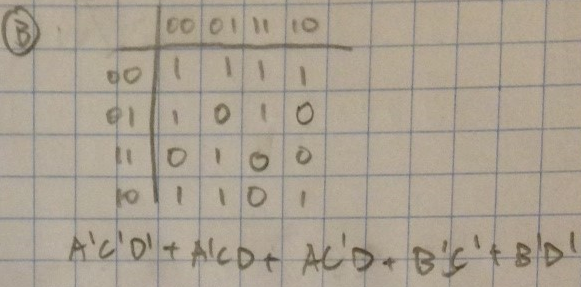 B
00 01 11 10
00 1 1 1 1
01 1 0 1 0
11 0 1 0 0
10 1 1 0 1
A'C'D' + A'CD + AC'D + B'C' + B'D'